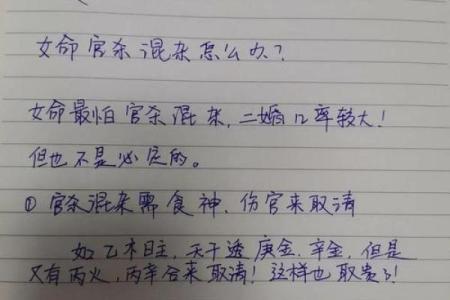 女命官杀混杂怎么办?
女命最怕官杀混杂,二婚几率较大!
但也不是必定的。
① 官杀混杂需食神、伤官来取清
如乙木日主,天干透庚金、辛金,但是
又有丙火,丙辛合来取清!这样也取贵了!